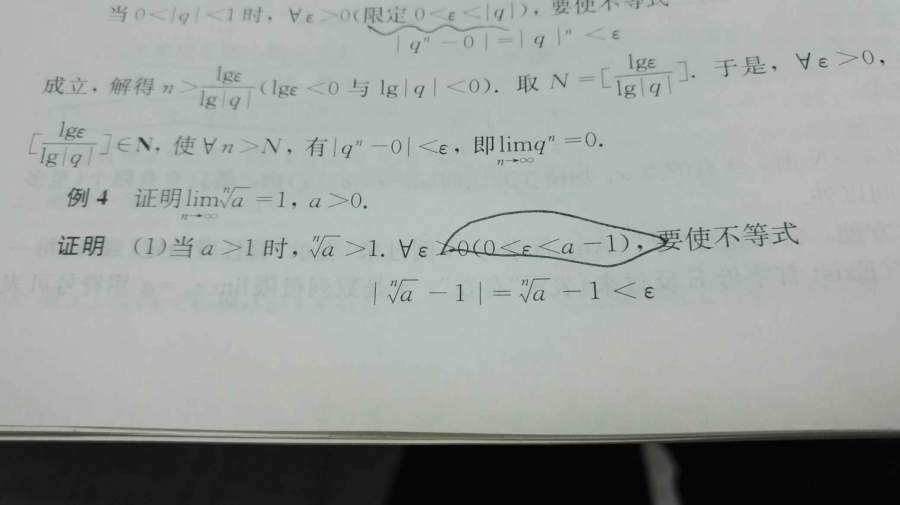 当0<|q|<1时,∀ε>0(限定0<ε<|q|),要使不等式
|qⁿ-0|=|q|ⁿ<ε
成立,解得n>lgε/lg|q|(lgε<0与lg|q|<0).取N=[lgε/lg|q|].于是,∀ε>0,
[lgε/lg|q|]∈N,使∀n>N,有|qⁿ-0|<ε,即lim_{n→∞}qⁿ=0.
例4 证明lim_{n→∞}ⁿ√a=1,a>0.
证明 (1)当a>1时,ⁿ√a>1.∀ε>0(0<ε<a-1),要使不等式
|ⁿ√a-1|=ⁿ√a-1<ε